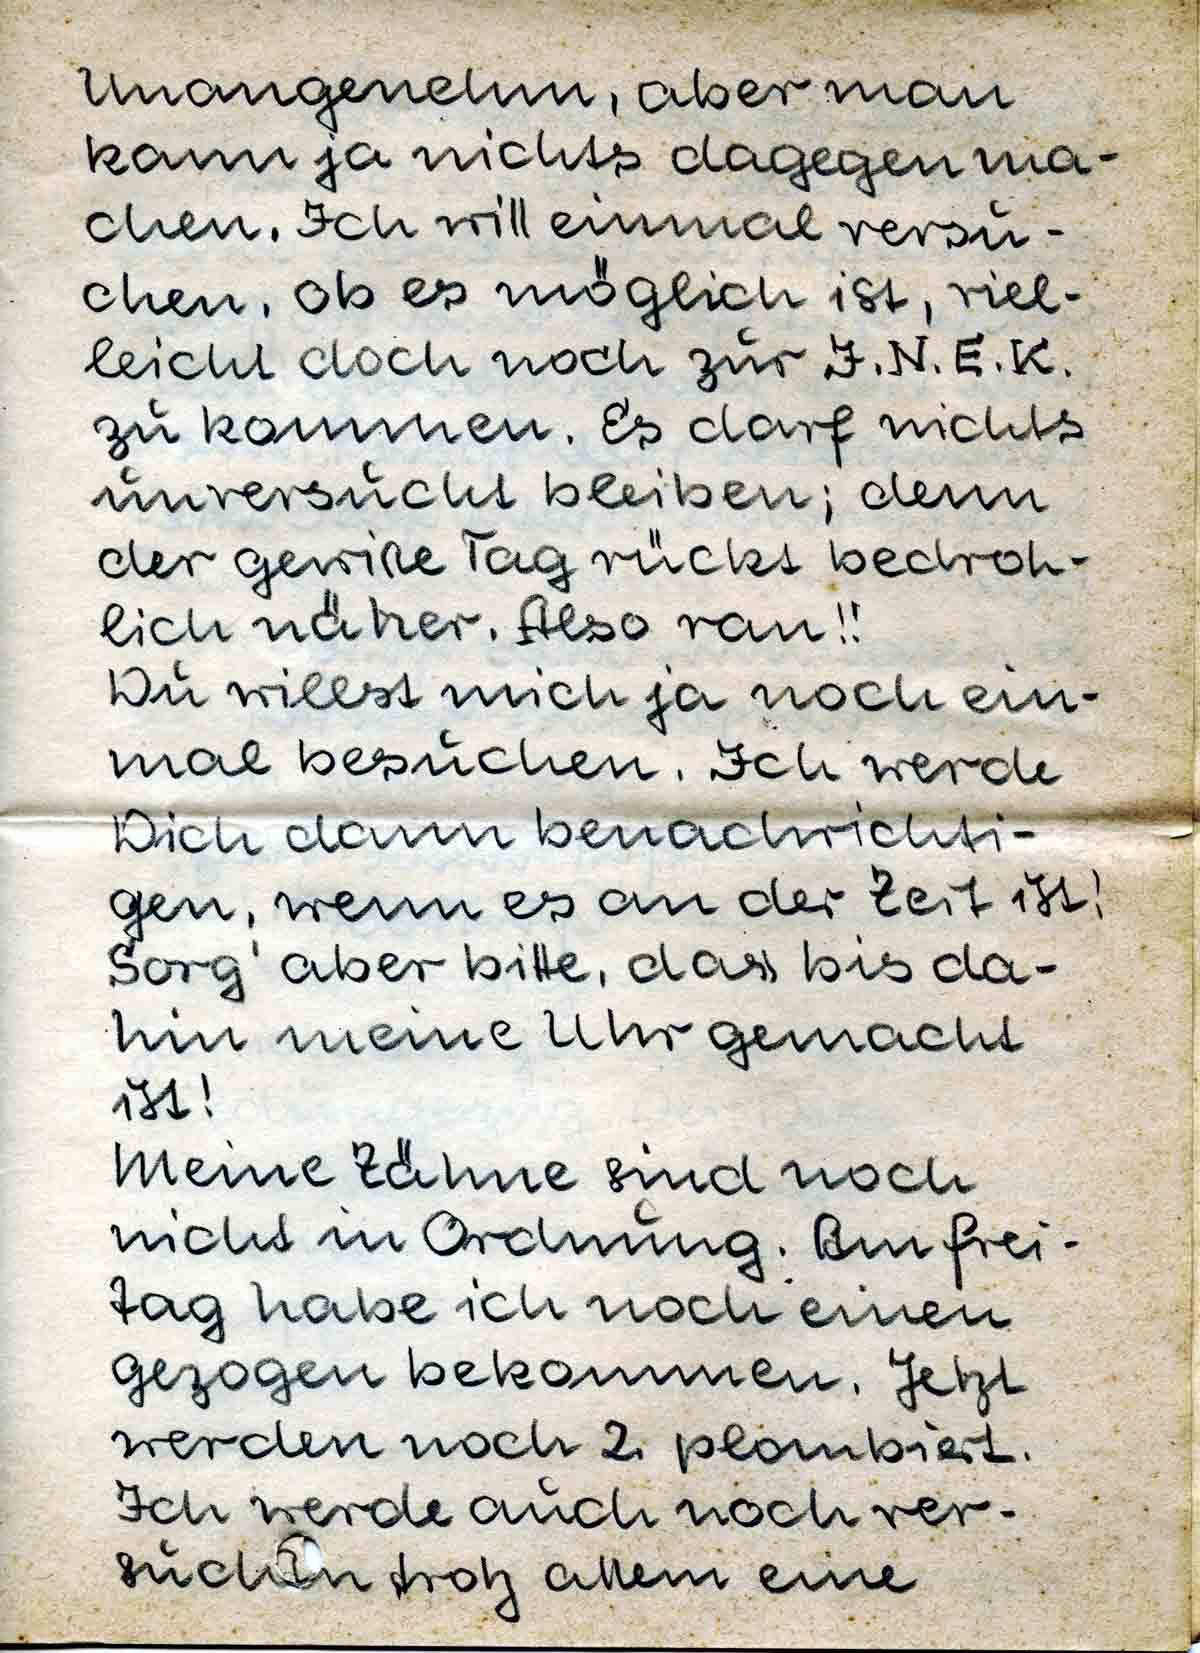 Unangenehm, aber man
kann ja nichts dagegen ma-
chen. Ich will einmal versu-
chen, ob es möglich ist, viel-
leicht doch noch zur I.N.E.K.
zu kommen. Es darf nichts
unversucht bleiben; denn
der gewiße Tag rückt bedroh-
lich näher. Also ran!!
Du willst mich ja noch ein-
mal besuchen. Ich werde
Dich dann benachrichti-
gen, wenn es an der Zeit ist!
Sorg' aber bitte, dass bis da-
hin meine Uhr gemacht
ist!
Meine Zähne sind noch
nicht in Ordnung. Am Frei-
tag habe ich noch einen
gezogen bekommen. Jetzt
werden noch 2 plombiert.
Ich werde auch noch ver-
suchen trotz allem eine